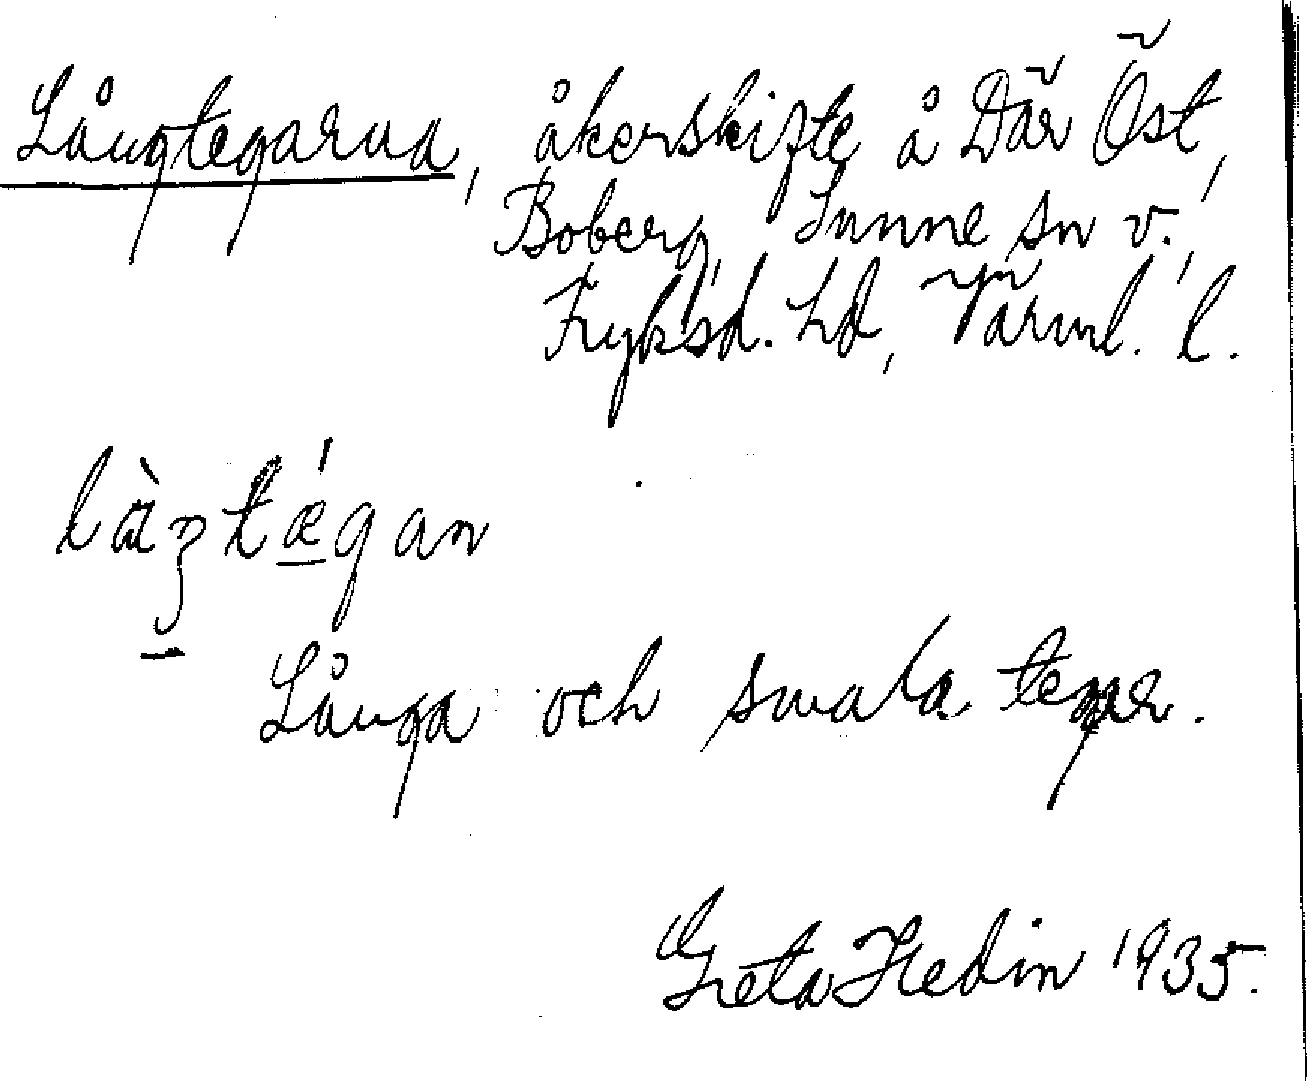 Långtegarna, åkerskifte å Där Öst,
Boberg, Sunne sn v.,
Fryksd. hd, Värml. l.
Långa och smala tegar.
Greta Hedin 1935.